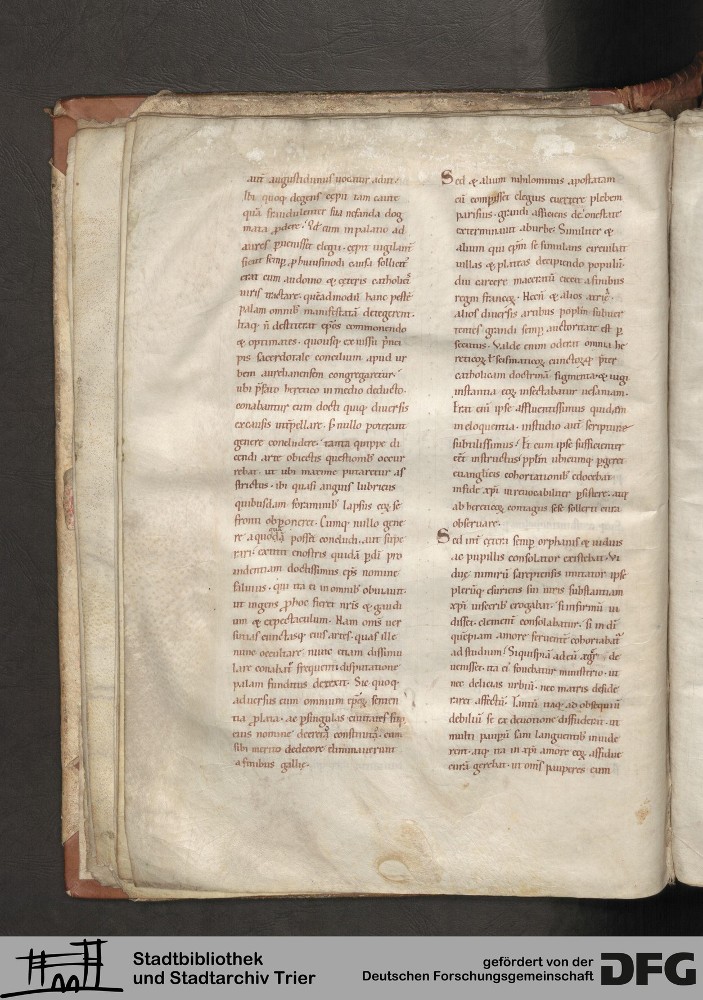 aut augustidunus uocatur adire.
Ibi quoq; degens cepit tam caute
quā fraudulenter sua nefanda dog
mata p̱dere. Qd̄ cum in palatio ad
aures puenisset elegii. cepit uigilant̄
sicut semp̱ p̱ huiusmodi causa sollicit̄
erat cum audoino & ceteris catholicis
uiris tractare. quēadmodū hanc pestē
palam omnib; manifestatā detegerent.
Itaq; n̄ destiterat ep̄os commonendo
& optimates. quousq; ex iussu p̄nci
pis sacerdotale concilium apud ur
bem aurelianensem congregaretur.
ubi p̄fato heretico in medio deducto.
conabantur eum docti quiq; diuersis
ex causis int̄pellare. s; nullo poterant
genere concludere. tanta quippe di
cendi arte obiectis questionib; occur
rebat. ut ubi maxime putaretur as
strictus. ibi quasi anguis lubricus
quibusdam foraminib; lapsus eq̨ se
fronti obponeret. Cumq; nullo gene
re a quoquā posset concludi. aut supe
rari. extitit e nostris quidā p̱ dī pro
uidentiam doctissimus ep̄s nomine
saluius. qui ita ei in omnib; obuiauit.
ut ingens p̱ hoc fieret nr̄is & gaudi
um & expectaculum. Nam om̄s uer
sutias cunctasq; eius artes. quas ille
nunc occultare. nunc etiam dissimu
lare conabat̄ frequenti disputatione
palam funditus detexit. Sic quoq;
aduersus eum omnium ep̄oꝝ senten
tia p̱lata. ac p̱ singulas ciuitates sup̱
eius nomine decreta constituta. cum
sibi merito dedecore eliminauerunt
a finibus gallie.
Sed & alium nihilominus apostatam
cū comp̱isset elegius euertere plebem
parisius. grandi afficiens dehonestate
exterminauit ab urbe. Similiter &
alium qui ep̄m se simulans circuibat
uillas & plateas decipiendo populū.
diu carcere maceratū eiecit a finibus
regni francoꝝ. Necn̄ & alios
alios diuersis artibus poplm̄ subuer
tentes grandi semp̱ auctoritate est p̱
secutus. Valde enim oderat omnia he
reticoꝝ ł scismaticoꝝ cunctoꝝq; p̄ter
catholicam doctrinā figmenta. & iugi
instantia eoꝝ insectabatur uesaniam.
Erat em̄ ipse affluentissimus quidem
in eloquentia. in studio aut̄ scripture
subtilissimus. Et cum ipse sufficienter
eēt instructus. pplm̄ ubicumq; p̱geret
euanglicis cohortationib; edocebat
in fide xp̄i irreuocabiliter p̱sistere. atq;
ab hereticoꝝ contagiis sese sollerti cura
obseruare.
Sed int̄ cetera semp̱ orphanis & uiduis
ac pupillis consolator existebat. Vi
due nimirū sareptensis imitator ipse
plerūq; esuriens sui iuris substantiam
xp̄i uisceribȝ erogabat. Si infirmū ui
disset. clementi consolabatur. si in dī
quēpiam amore feruente cohortabat̄
ad studium. Si quispiā ad eū de
uenisset. ita ei fouebatur ministerio. ut
nec delicias urbiū. nec matris deside
raret affectū. Tantū itaq; ad obsequiū
debiliū se ex deuotione diffuderat. ut
multi paupū sani languentib; inuide
rent. atq; ita in xp̄i amore eoꝝ assidue
curā gerebat. ut om̄s pauperes eum
Stadtbibliothek
und Stadtarchiv Trier
gefördert von der
Deutschen Forschungsgemeinschaft
DFG